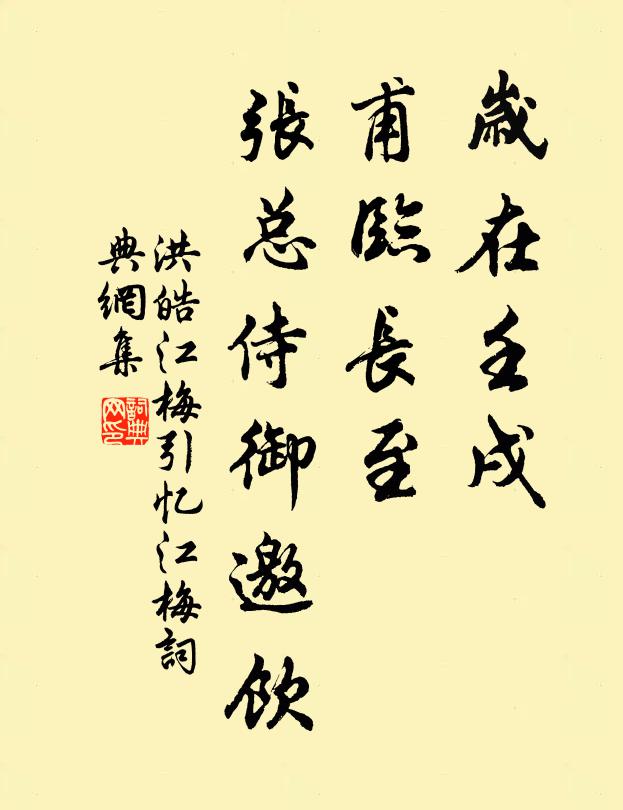 歲在壬戌
甫臨長至
張总侍御邀飲
洪皓江梅引忆江梅詞
典網集
詞典網印